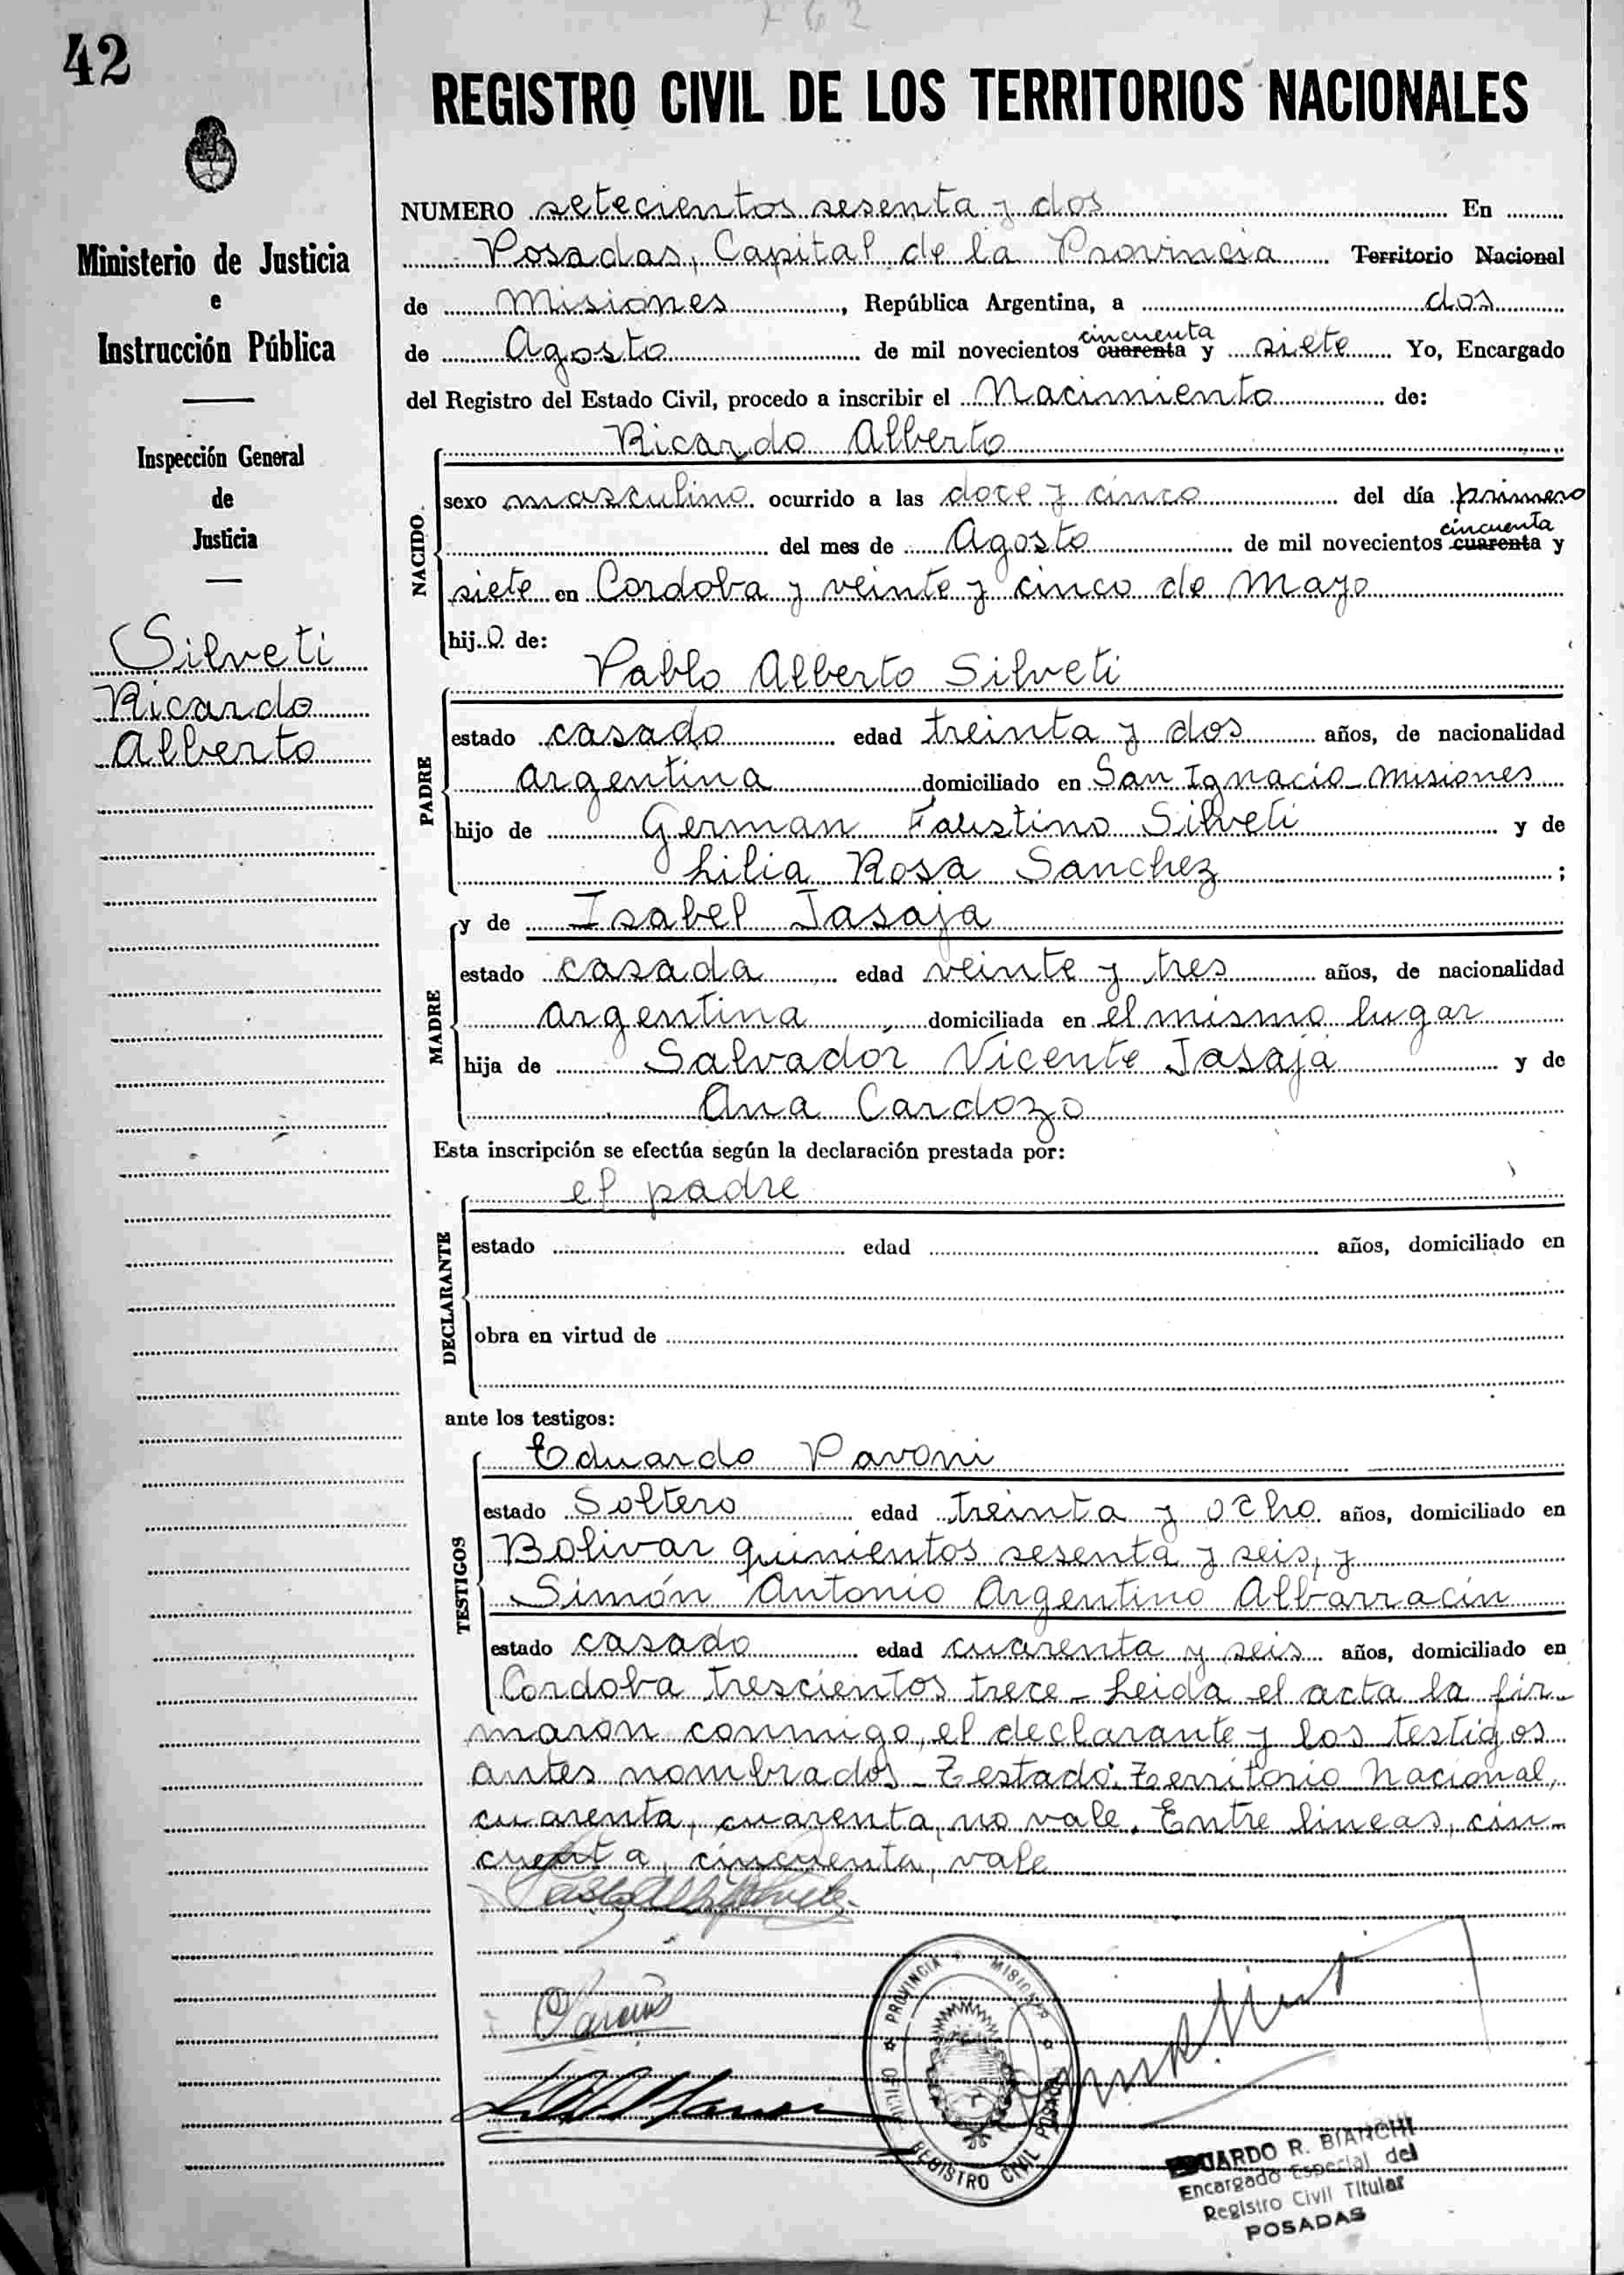 762
42
REGISTRO CIVIL DE LOS TERRITORIOS NACIONALES
Ministerio de Justicia
e
Instrucción Pública
Inspección General
de
Justicia
Silveti
Ricardo
Alberto
NUMERO setecientos sesenta y dos En
Posadas, Capital de la Provincia Territorio Nacional
de Misiones, República Argentina, a dos
cincuenta
de Agosto de mil novecientos cuarenta y siete Yo, Encargado
del Registro del Estado Civil, procedo a inscribir el Nacimiento de:
Ricardo Alberto
NACIDO
sexo masculino ocurrido a las doce y cinco del día primero
cincuenta
del mes de Agosto de mil novecientos cuarenta y
siete en Cordoba y veinte y cinco de Mayo
hijo de:
Pablo Alberto Silveti
PADRE
estado casado edad treinta y dos años, de nacionalidad
argentina domiciliado en San Ignacio - Misiones
hijo de German Faustino Silveti y de
Lilia Rosa Sanchez;
y de Isabel Jasaja
MADRE
estado casada edad veinte y tres años, de nacionalidad
argentina domiciliada en el mismo lugar
hija de Salvador Vicente Jasaja y de
Ana Cardozo
Esta inscripción se efectúa según la declaración prestada por:
el padre
DECLARANTE
estado edad años, domiciliado en
obra en virtud de
ante los testigos:
Eduardo Pavoni
TESTIGOS
estado Soltero edad treinta y ocho años, domiciliado en
Bolivar quinientos sesenta y seis, y
Simón Antonio Argentino Albarracin
estado casado edad cuarenta y seis años, domiciliado en
Cordoba trescientos trece - Leida el acta la fir-
maron conmigo, el declarante y los testigos
antes nombrados - Testado: Territorio Nacional,
cuarenta, cuarenta, no vale. Entre lineas, cin-
cuenta, cincuenta, vale
PROVINCIA MISIONES
REGISTRO CIVIL POSADAS
EDUARDO R. BIANCHI
Encargado Especial del
Registro Civil Titular
POSADAS